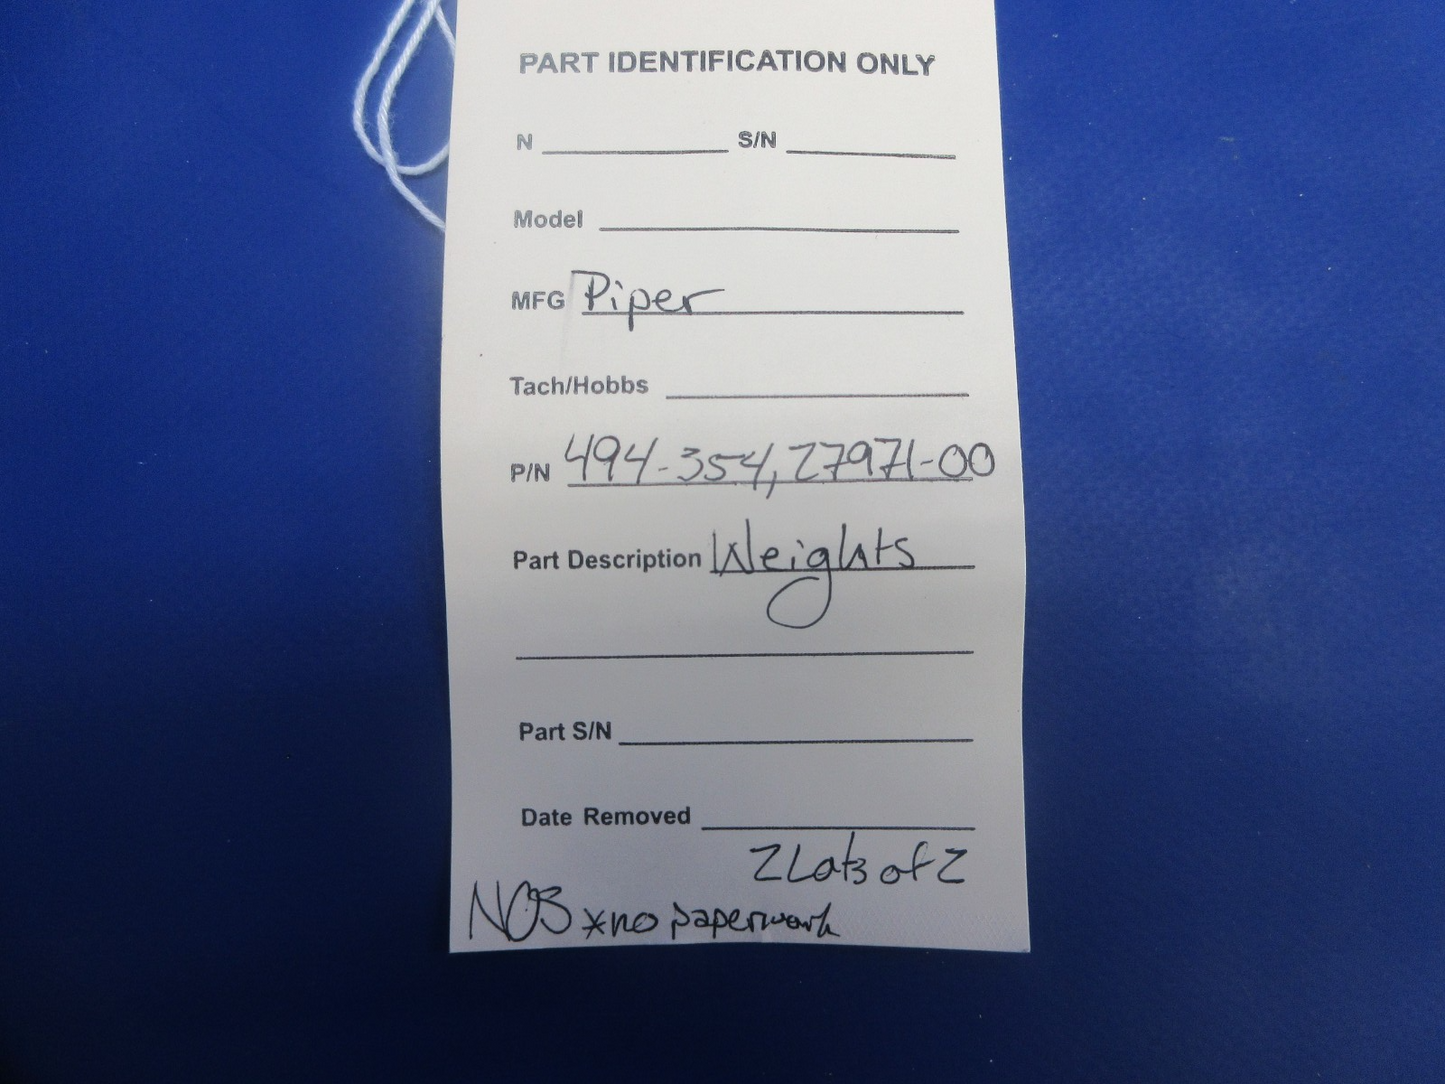 PART IDENTIFICATION ONLY
N S/N
Model
MFG Piper
Tach/Hobbs
P/N 494-354, 27971-00
Part Description Weights
Part S/N
Date Removed
2 Lots of 2
NOS *no paperwork